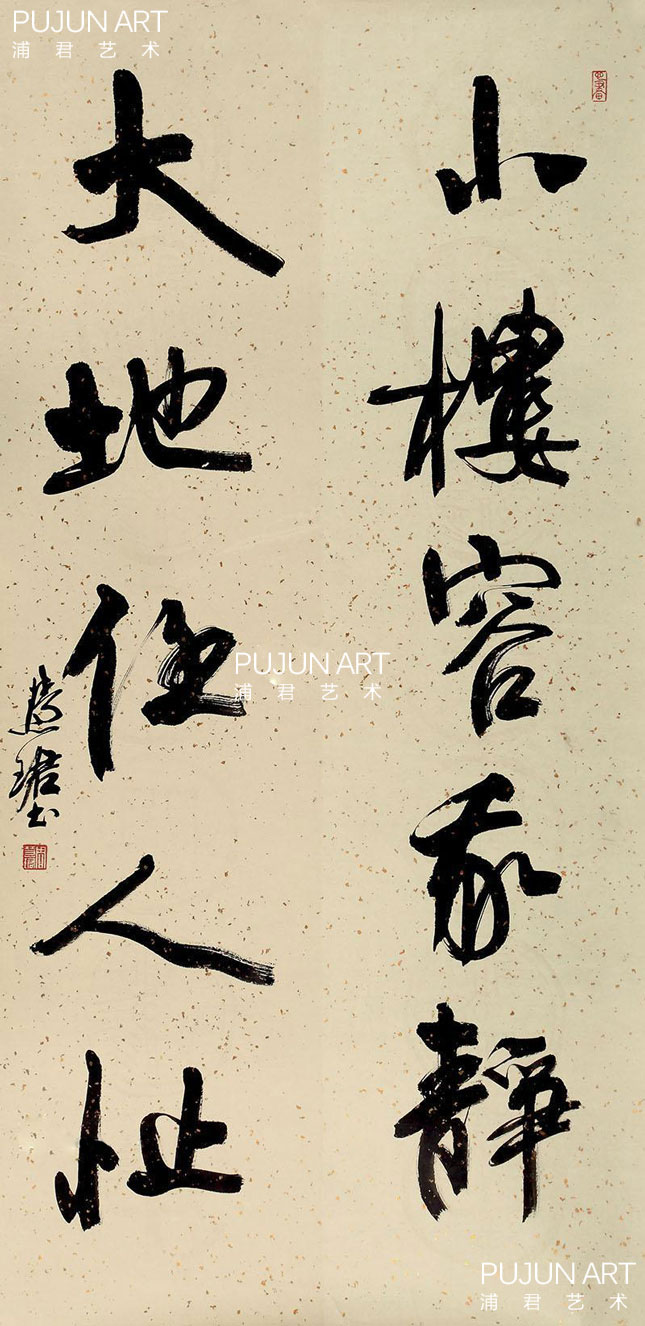 PUJUN ART
浦君艺术
小樓容我靜
大地任人忙
慧珺书
PUJUN ART
浦君艺术
PUJUN ART
浦君艺术